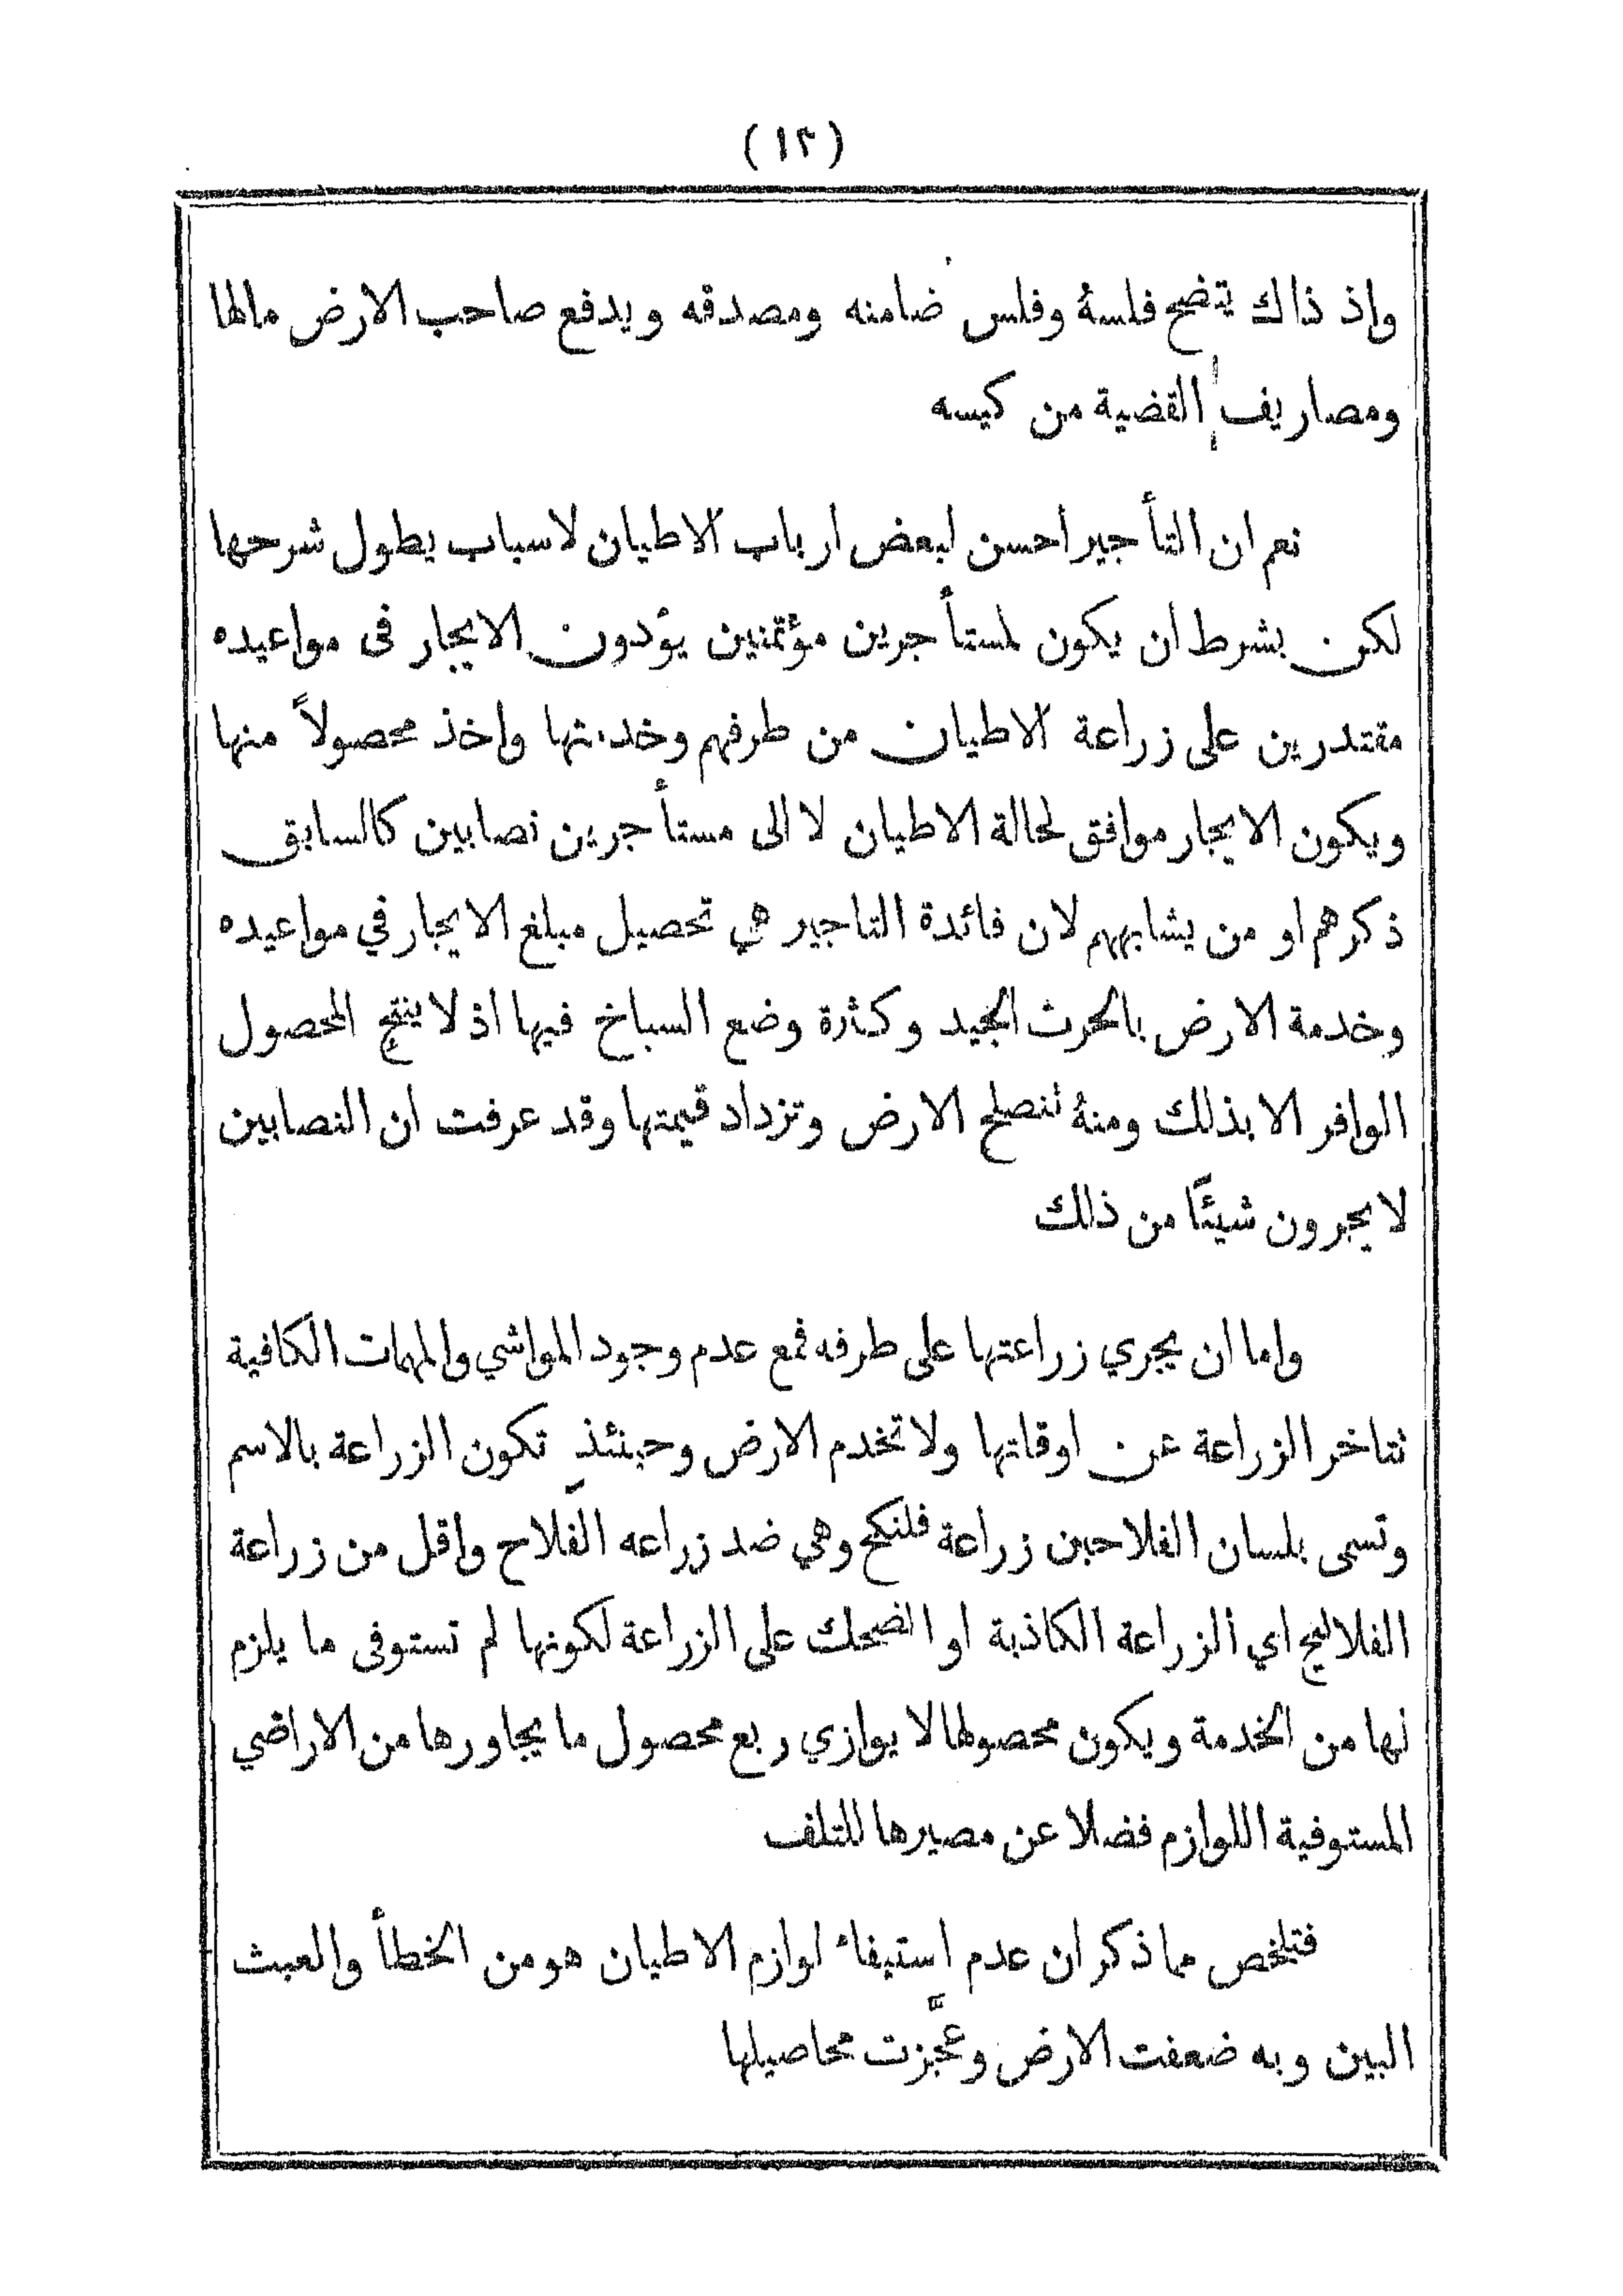 (١٢)
واذ ذاك يتضح فلسهُ وفلس ضامنه ومصدقه ويدفع صاحب الارض مالها
ومصاريف القضية من كيسه
نعم ان التأجير احسن لبعض ارباب الاطيان لاسباب يطول شرحها
لكن بشرط ان يكون لمستأجرين مؤتمنين يؤدون الايجار فى مواعيده
مقتدرين على زراعة الاطيان من طرفهم وخدمتها واخذ محصولاً منها
ويكون الايجار موافق لحالة الاطيان لا الى مستأجرين نصابين كالسابق
ذكرهم او من يشابههم لان فائدة التاجير هي تحصيل مبلغ الايجار في مواعيده
وخدمة الارض بالحرث الجيد وكثرة وضع السباخ فيها اذ لا ينتج المحصول
الوافر الا بذلك ومنهُ تنصلح الارض وتزداد قيمتها وقد عرفت ان النصابين
لا يجرون شيئًا من ذلك
واما ان يجري زراعتها على طرفه فمع عدم وجود المواشي والمهمات الكافية
تتاخر الزراعة عن اوقاتها ولا تخدم الارض وحينئذٍ تكون الزراعة بالاسم
وتسمى بلسان الفلاحين زراعة فلنكح وهي ضد زراعه الفلاح واقل من زراعة
الفلاليح اي الزراعة الكاذبة او الضحك على الزراعة لكونها لم تستوفى ما يلزم
لها من الخدمة ويكون محصولها لا يوازي ربع محصول ما يجاورها من الاراضي
المستوفية اللوازم فضلا عن مصيرها للتلف
فتلخص مما ذكر ان عدم استيفاء لوازم الاطيان هو من الخطأ والعبث
البين وبه ضعفت الارض وعجَّزت محاصيلها